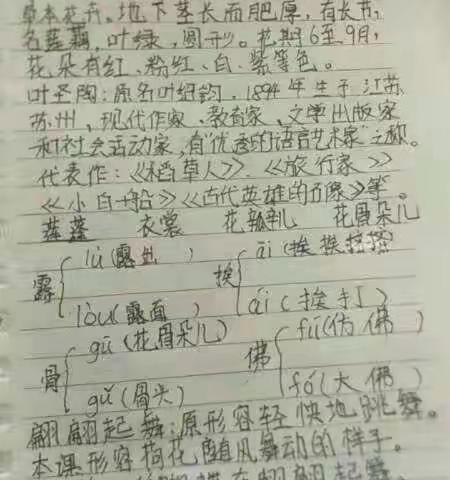 草本花卉。地下茎长而肥厚,有长节,
名莲藕,叶绿,圆形。花期6至9月,
花朵有红、粉红、白、紫等色。
叶圣陶:原名叶绍钧,1894年生于江苏
苏州,现代作家、教育家、文学出版家
和社会活动家,有“优秀的语言艺术家”之称。
代表作:《稻草人》、《旅行家》
《小白船》《古代英雄的石像》等。
莲蓬 衣裳 花瓣儿 花骨朵儿
露 lù(露出) 挨 āi(挨挨挤挤)
lòu(露面) ái(挨打)
骨 gū(花骨朵儿) 佛 fú(仿佛)
gǔ(骨头) fó(大佛)
翩翩起舞:原形容轻快地跳舞。
本课形容荷花随风舞动的样子。
翩翩起舞。